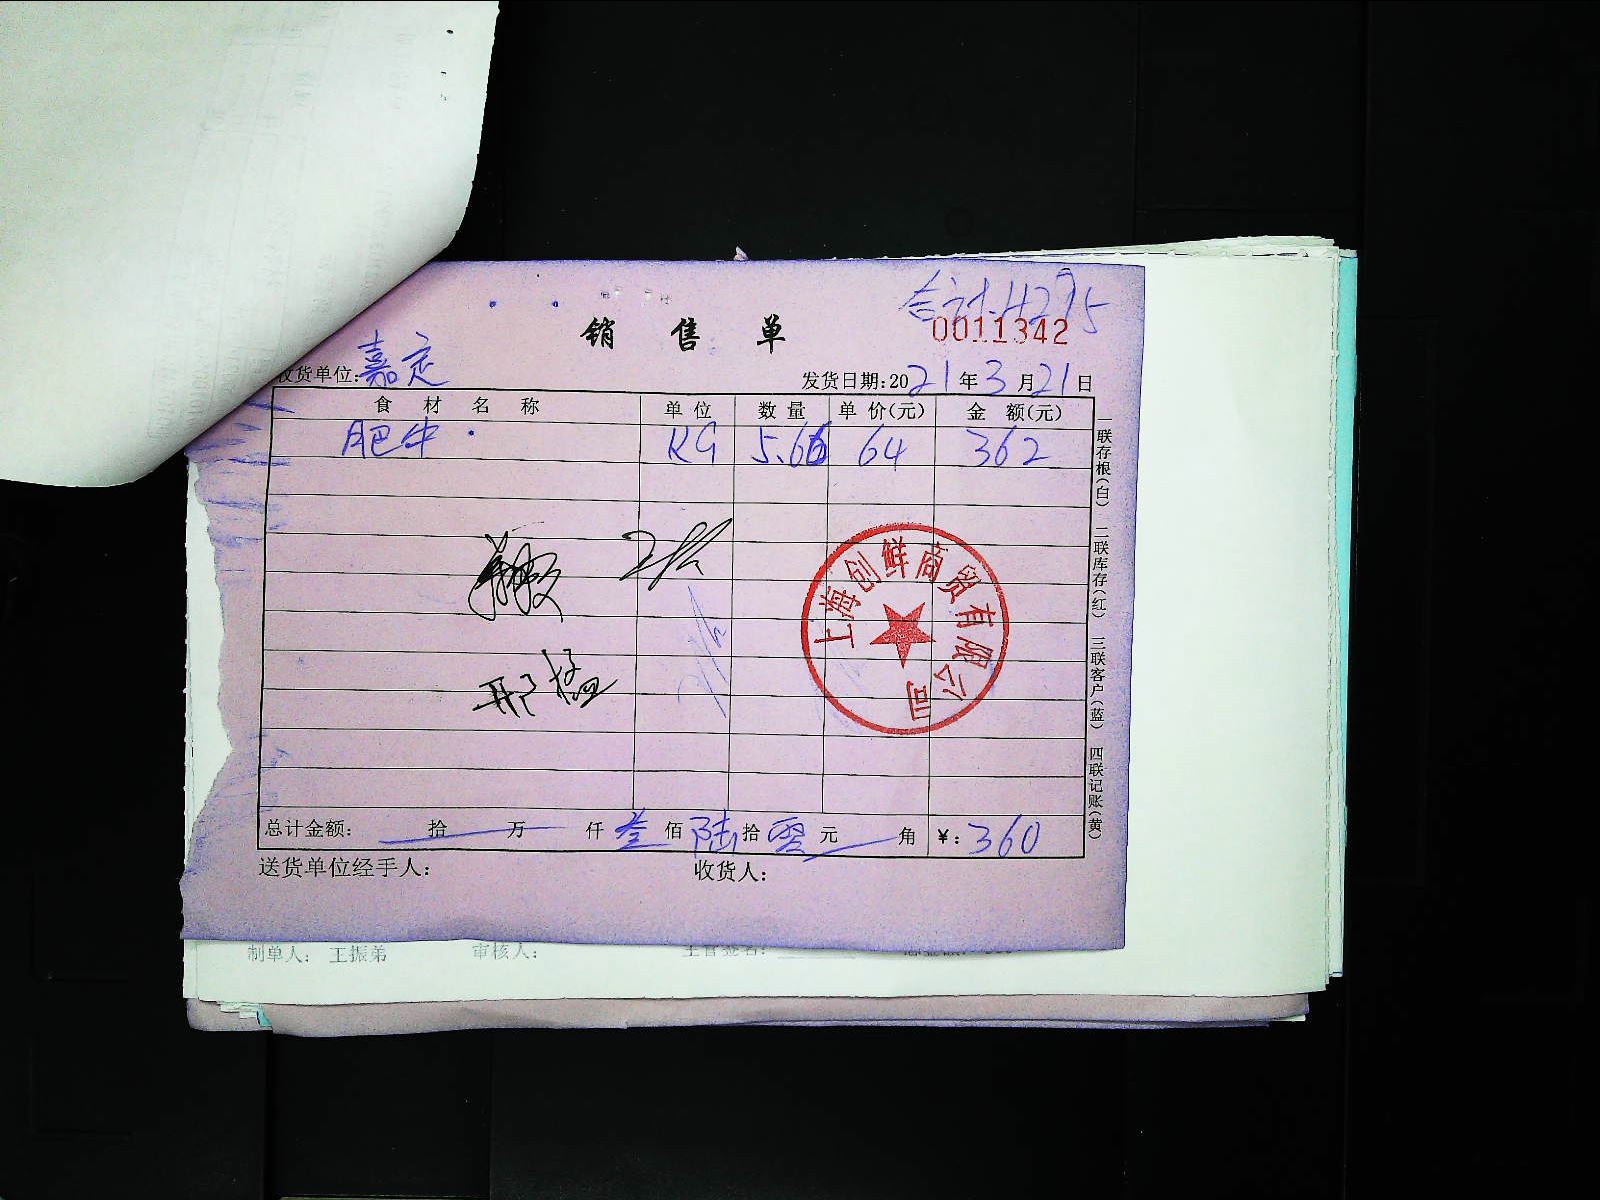 合计.4275
销售单
0011342
收货单位:嘉定
发货日期:2021年3月21日
食材名称 单位 数量 单价(元) 金额(元)
肥牛 KG 5.66 64 362
上海创鲜商贸有限公司
邢猛
总计金额: 拾 万 仟叁佰陆拾零元 角 ¥:360
送货单位经手人: 收货人:
一联存根(白) 二联库存(红) 三联客户(蓝) 四联记账(黄)
制单人: 王振弟 审核人: 主管签名: